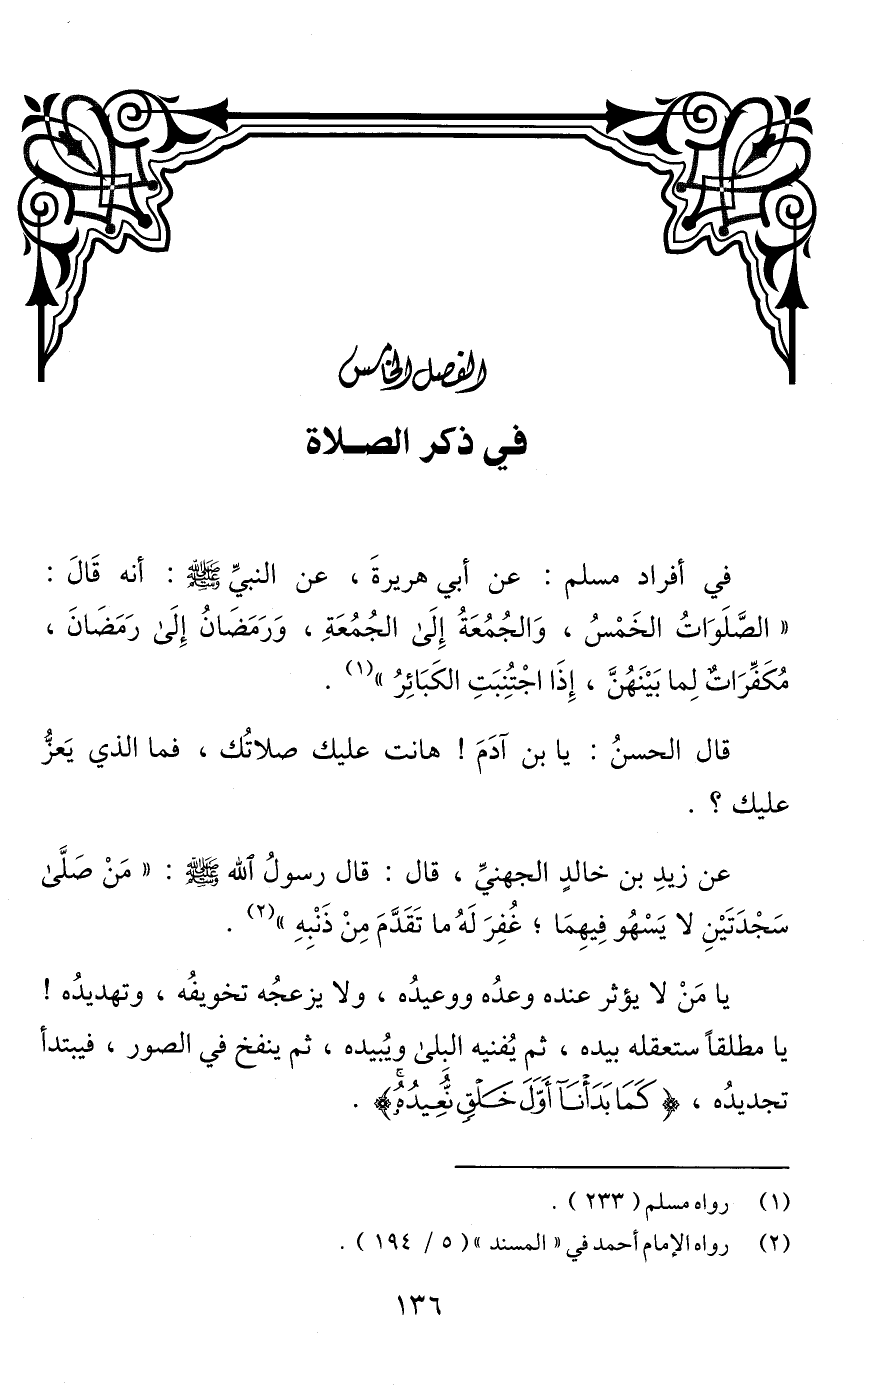 الفصل الخامس
في ذكر الصـلاة
في أفراد مسلم : عن أبي هريرةَ ، عن النبيِّ ﷺ : أنه قَالَ :
« الصَّلَوَاتُ الخَمْسُ ، وَالجُمُعَةُ إِلَىٰ الجُمُعَةِ ، وَرَمَضَانُ إِلَىٰ رَمَضَانَ ،
مُكَفِّرَاتٌ لِما بَيْنَهُنَّ ، إِذَا اجْتُنِبَتِ الكَبَائِرُ »(١) .
قال الحسنُ : يا بن آدَمَ ! هانت عليك صلاتُك ، فما الذي يَعزُّ
عليك ؟ .
عن زيدِ بن خالدٍ الجهنيِّ ، قال : قال رسولُ الله ﷺ : « مَنْ صَلَّىٰ
سَجْدَتَيْنِ لا يَسْهُو فِيهِمَا ؛ غُفِرَ لَهُ ما تَقَدَّمَ مِنْ ذَنْبِهِ »(٢) .
يا مَنْ لا يؤثر عنده وعدُه ووعيدُه ، ولا يزعجُه تخويفُه ، وتهديدُه !
يا مطلقاً ستعقله بيده ، ثم يُفنيه البلىٰ ويُبيده ، ثم ينفخ في الصور ، فيبتدأ
تجديدُه ، ﴿ كَمَا بَدَأْنَآ أَوَّلَ خَلْقٍ نُّعِيدُهُۥۚ ﴾ .
(١) رواه مسلم ( ٢٣٣ ) .
(٢) رواه الإمام أحمد في « المسند » ( ٥ / ١٩٤ ) .
١٣٦